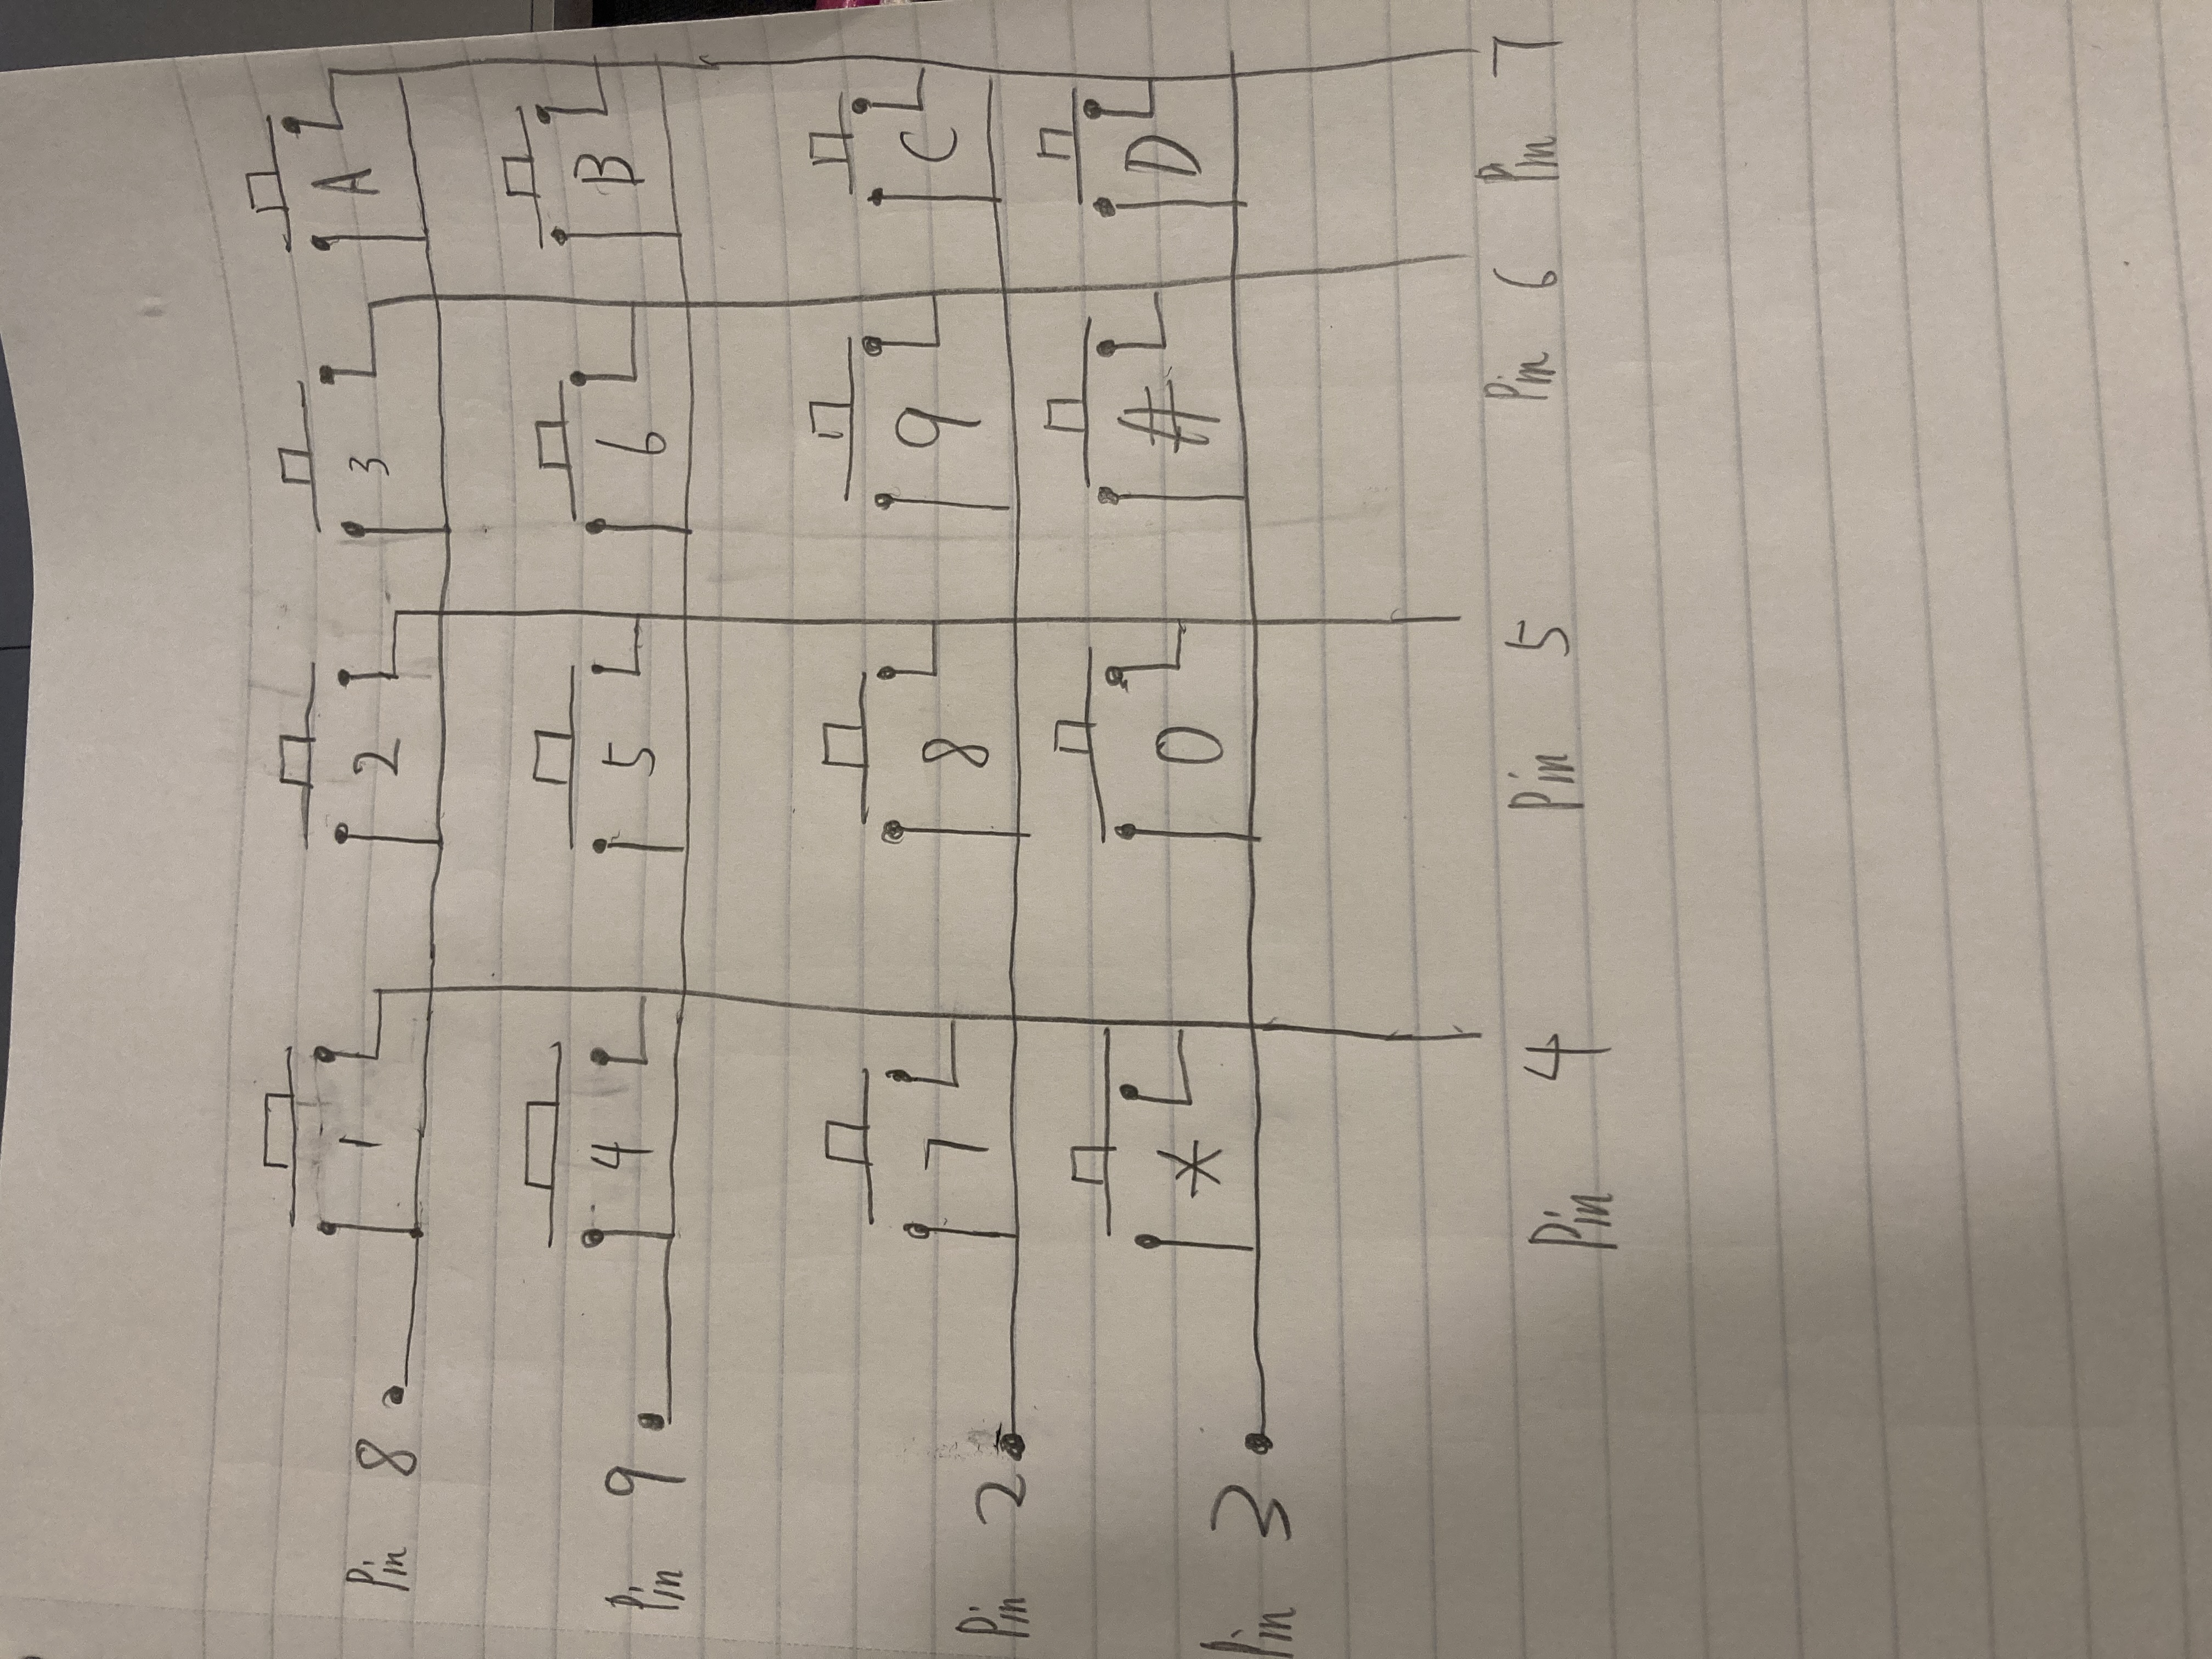 Pin 8 1 2 3 A
Pin 9 4 5 6 B
Pin 2 7 8 9 C
Pin 3 * 0 # D
Pin 4 Pin 5 Pin 6 Pin 7